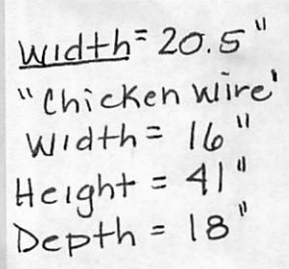 Width = 20.5"
"Chicken Wire'
Width = 16"
Height = 41"
Depth = 18"